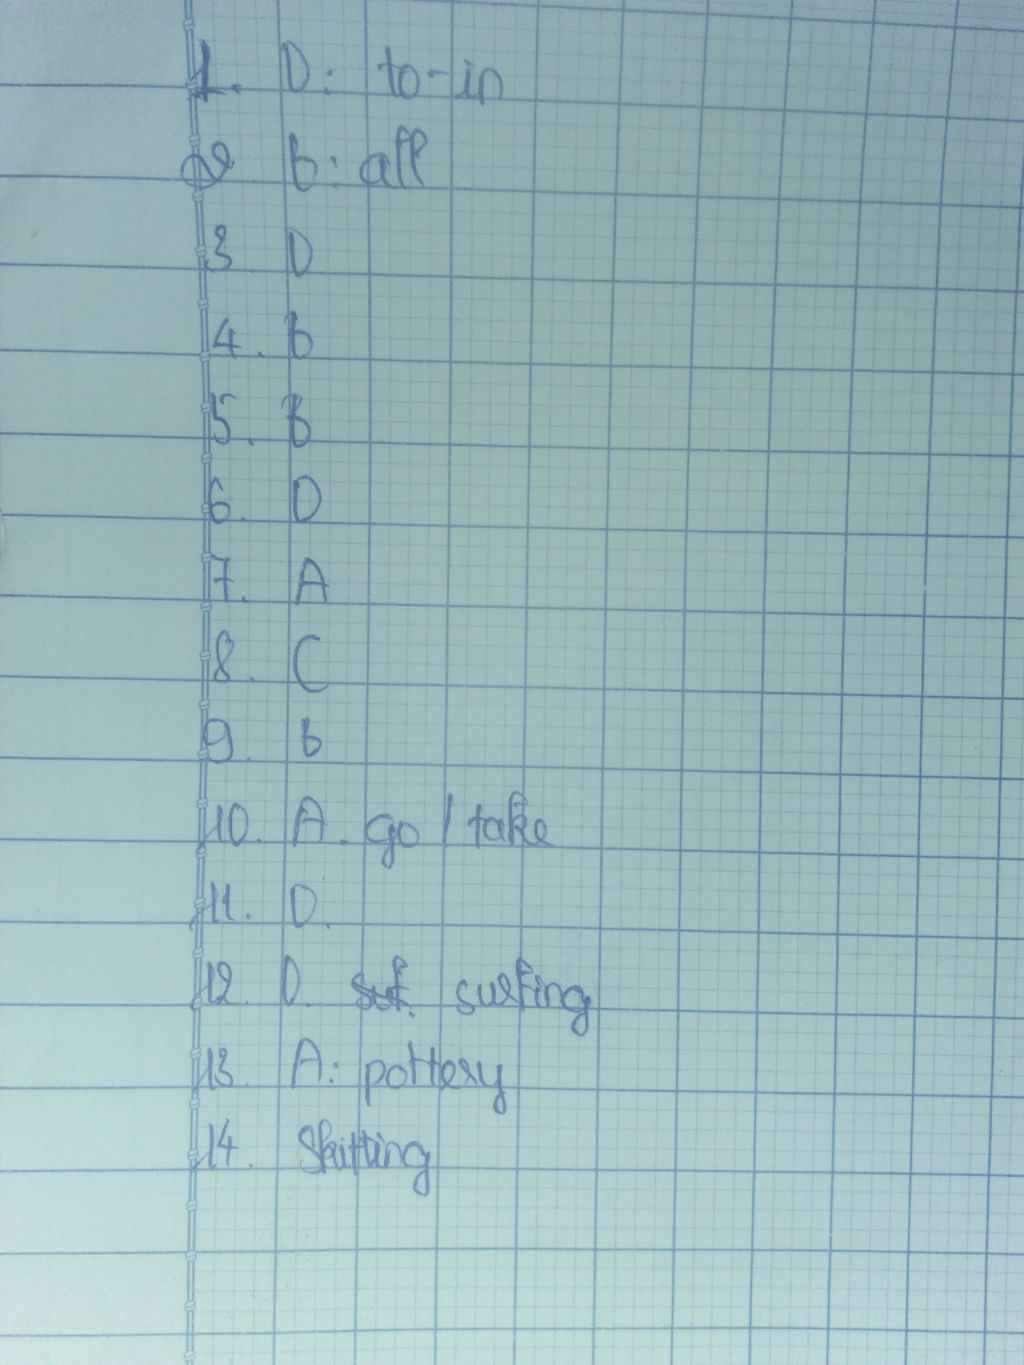 1. D: to-in
2 B: all
3. D
4. B
5. B
6. D
7. A
8. C
9. B
10. A. go / take
11. D.
12. D. surfing
13. A: pottery
14. Skitting